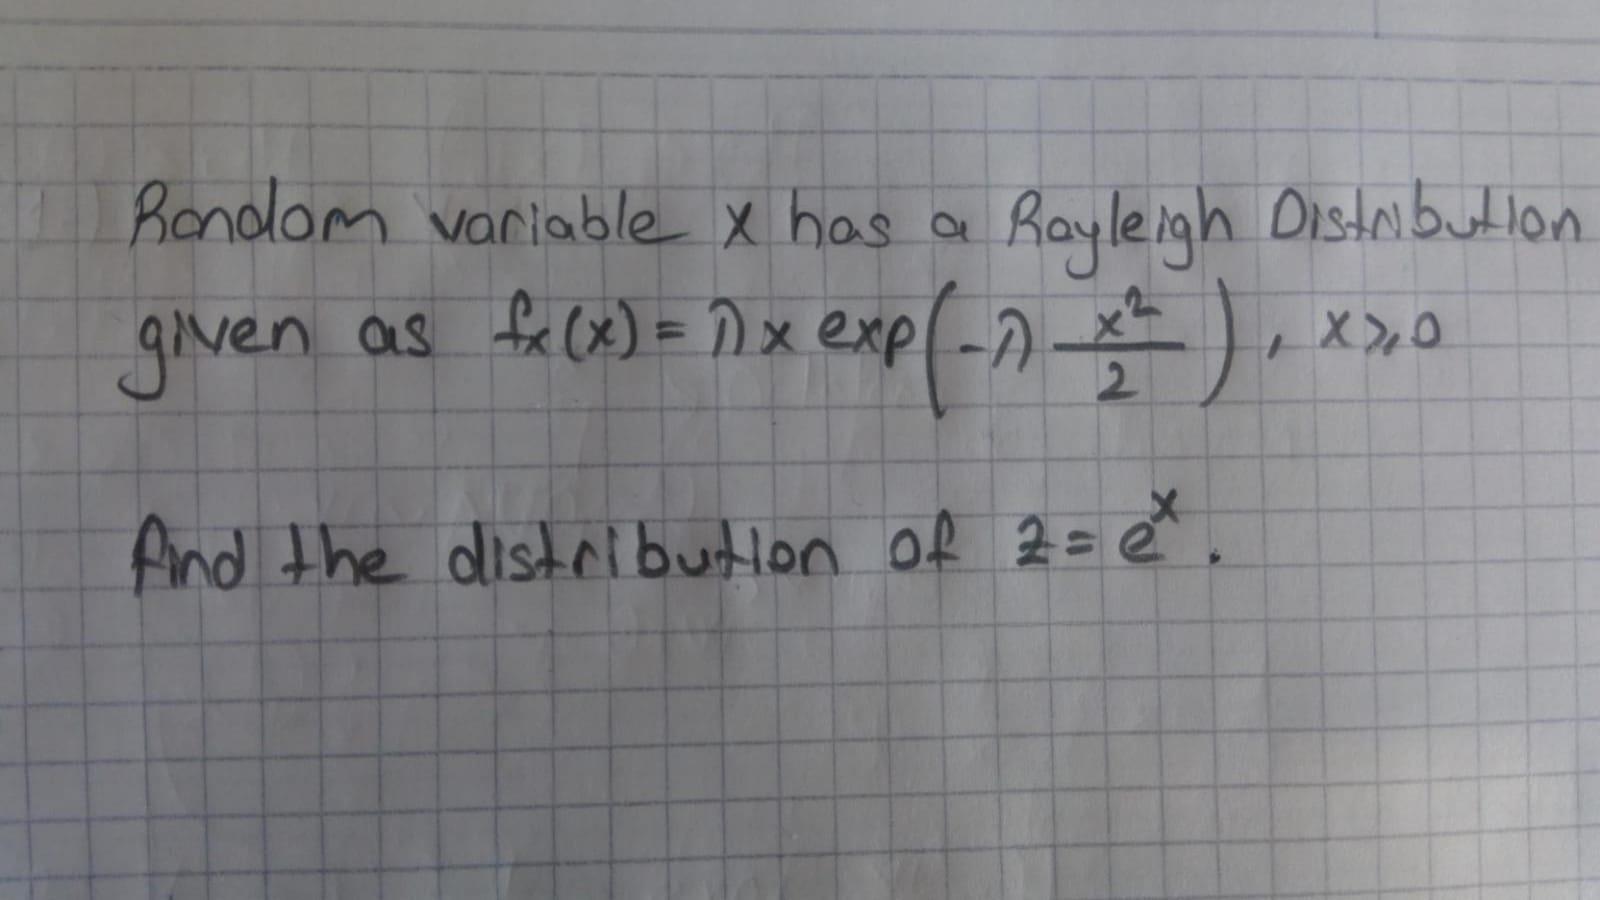 Random variable X has a Rayleigh Distribution
given as fx(x) = λx exp(-λ x²/2), x≥0
find the distribution of z = eˣ.